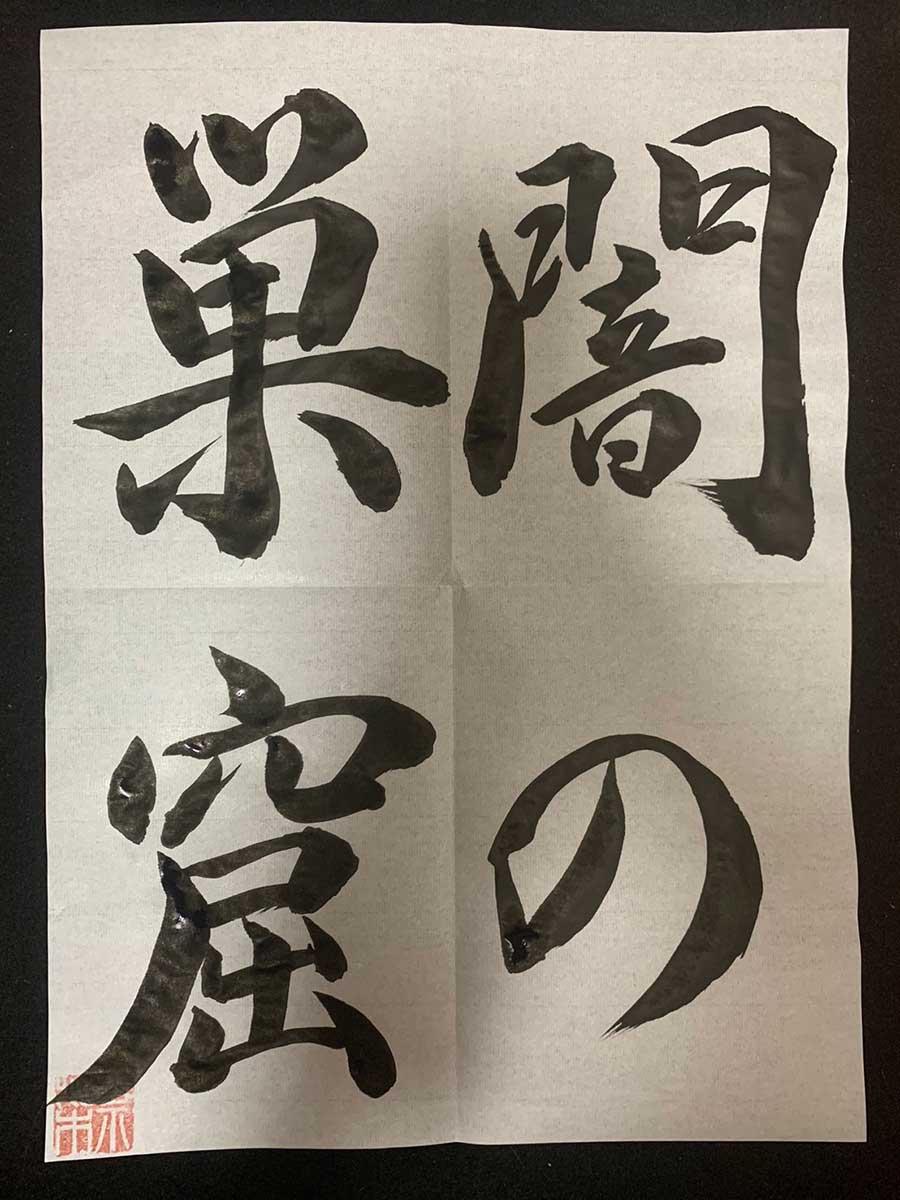 闇の
巣窟